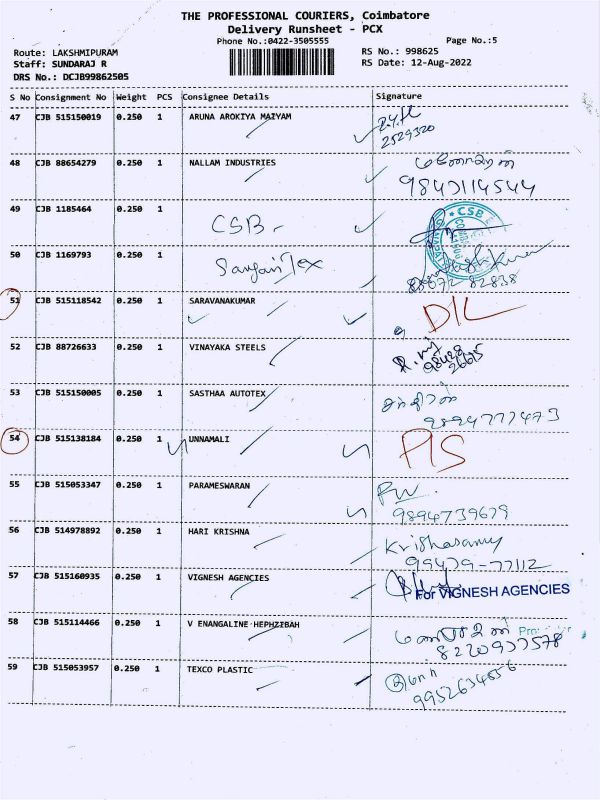 THE PROFESSIONAL COURIERS, Coimbatore
Delivery Runsheet - PCX
Phone No.:0422-3505555 Page No.:5
Route: LAKSHMIPURAM RS No.: 998625
Staff: SUNDARAJ R RS Date: 12-Aug-2022
DRS No.: DCJB99862505
S No Consignment No Weight PCS Consignee Details Signature
47 CJB 515150019 0.250 1 ARUNA AROKIYA MAIYAM
2529320
48 CJB 88654279 0.250 1 NALLAM INDUSTRIES
9843114544
49 CJB 1185464 0.250 1 CSB
CSB
50 CJB 1169793 0.250 1
82838
51 CJB 515118542 0.250 1 SARAVANAKUMAR D/L
52 CJB 88726633 0.250 1 VINAYAKA STEELS
98428
26615
53 CJB 515150005 0.250 1 SASTHAA AUTOTEX
9894777473
54 CJB 515138184 0.250 1 UNNAMALI P/S
55 CJB 515053347 0.250 1 PARAMESWARAN
9894739679
56 CJB 514978892 0.250 1 HARI KRISHNA Krishasamy
99479-77112
57 CJB 515160935 0.250 1 VIGNESH AGENCIES For VIGNESH AGENCIES
58 CJB 515114466 0.250 1 V ENANGALINE HEPHZIBAH
8220937578
59 CJB 515053957 0.250 1 TEXCO PLASTIC
9952634656